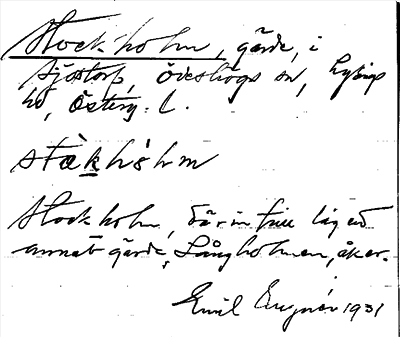 Stockholm, gärde, i
Sjöstorp, Ödeshögs sn, Lysings
hd, Österg. l.
stȧkhȯlm
Stockholm, där intill låg ett
annat gärde, Långholmen, åker.
Emil 1931